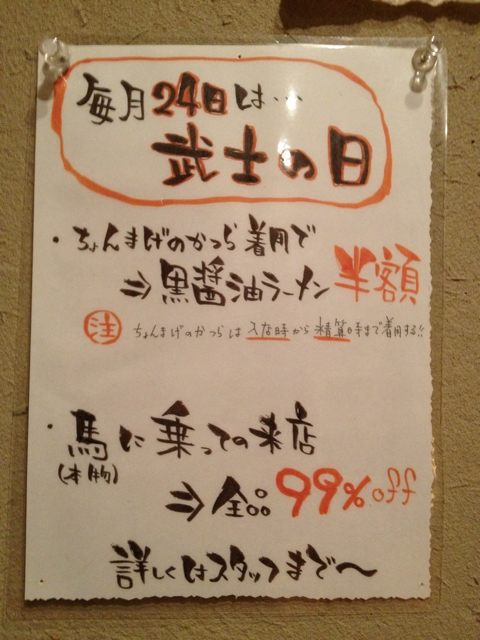 毎月24日は…
武士の日
・ちょんまげのかつら着用で
⇒黒醤油ラーメン半額
注 ちょんまげのかつらは入店時から精算時まで着用する!!
・馬に乗っての来店
(本物)
⇒全品99%off
詳しくはスタッフまで〜